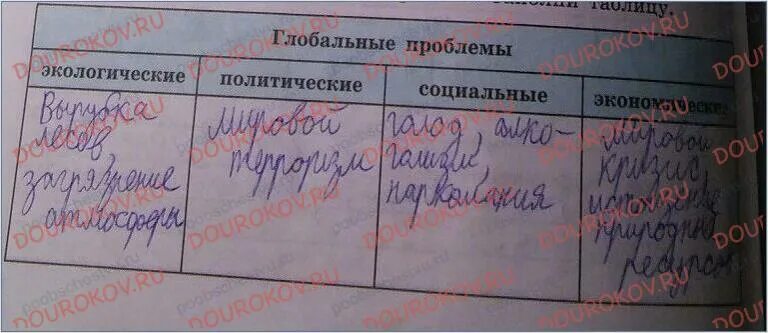 таблицу.
Глобальные проблемы
экологические политические социальные экономические
Вырубка
лесов,
загрязнение
атмосферы
мировой
терроризм
голод, алко-
голизм,
наркомания
мировой
кризис,
истощение
природных
ресурсов
DOUROKOV.RU